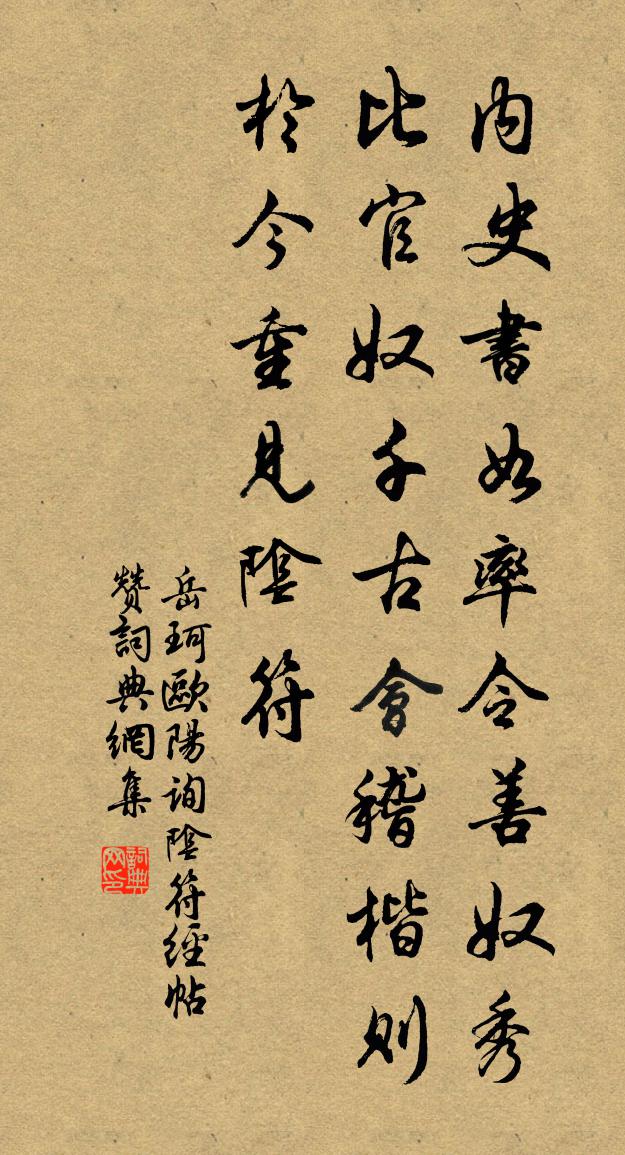 内史書如率令善奴秀
比官奴千古會稽楷則
於今重見陰符
岳珂歐陽询陰符經帖
贊詞典網集
詞典网印